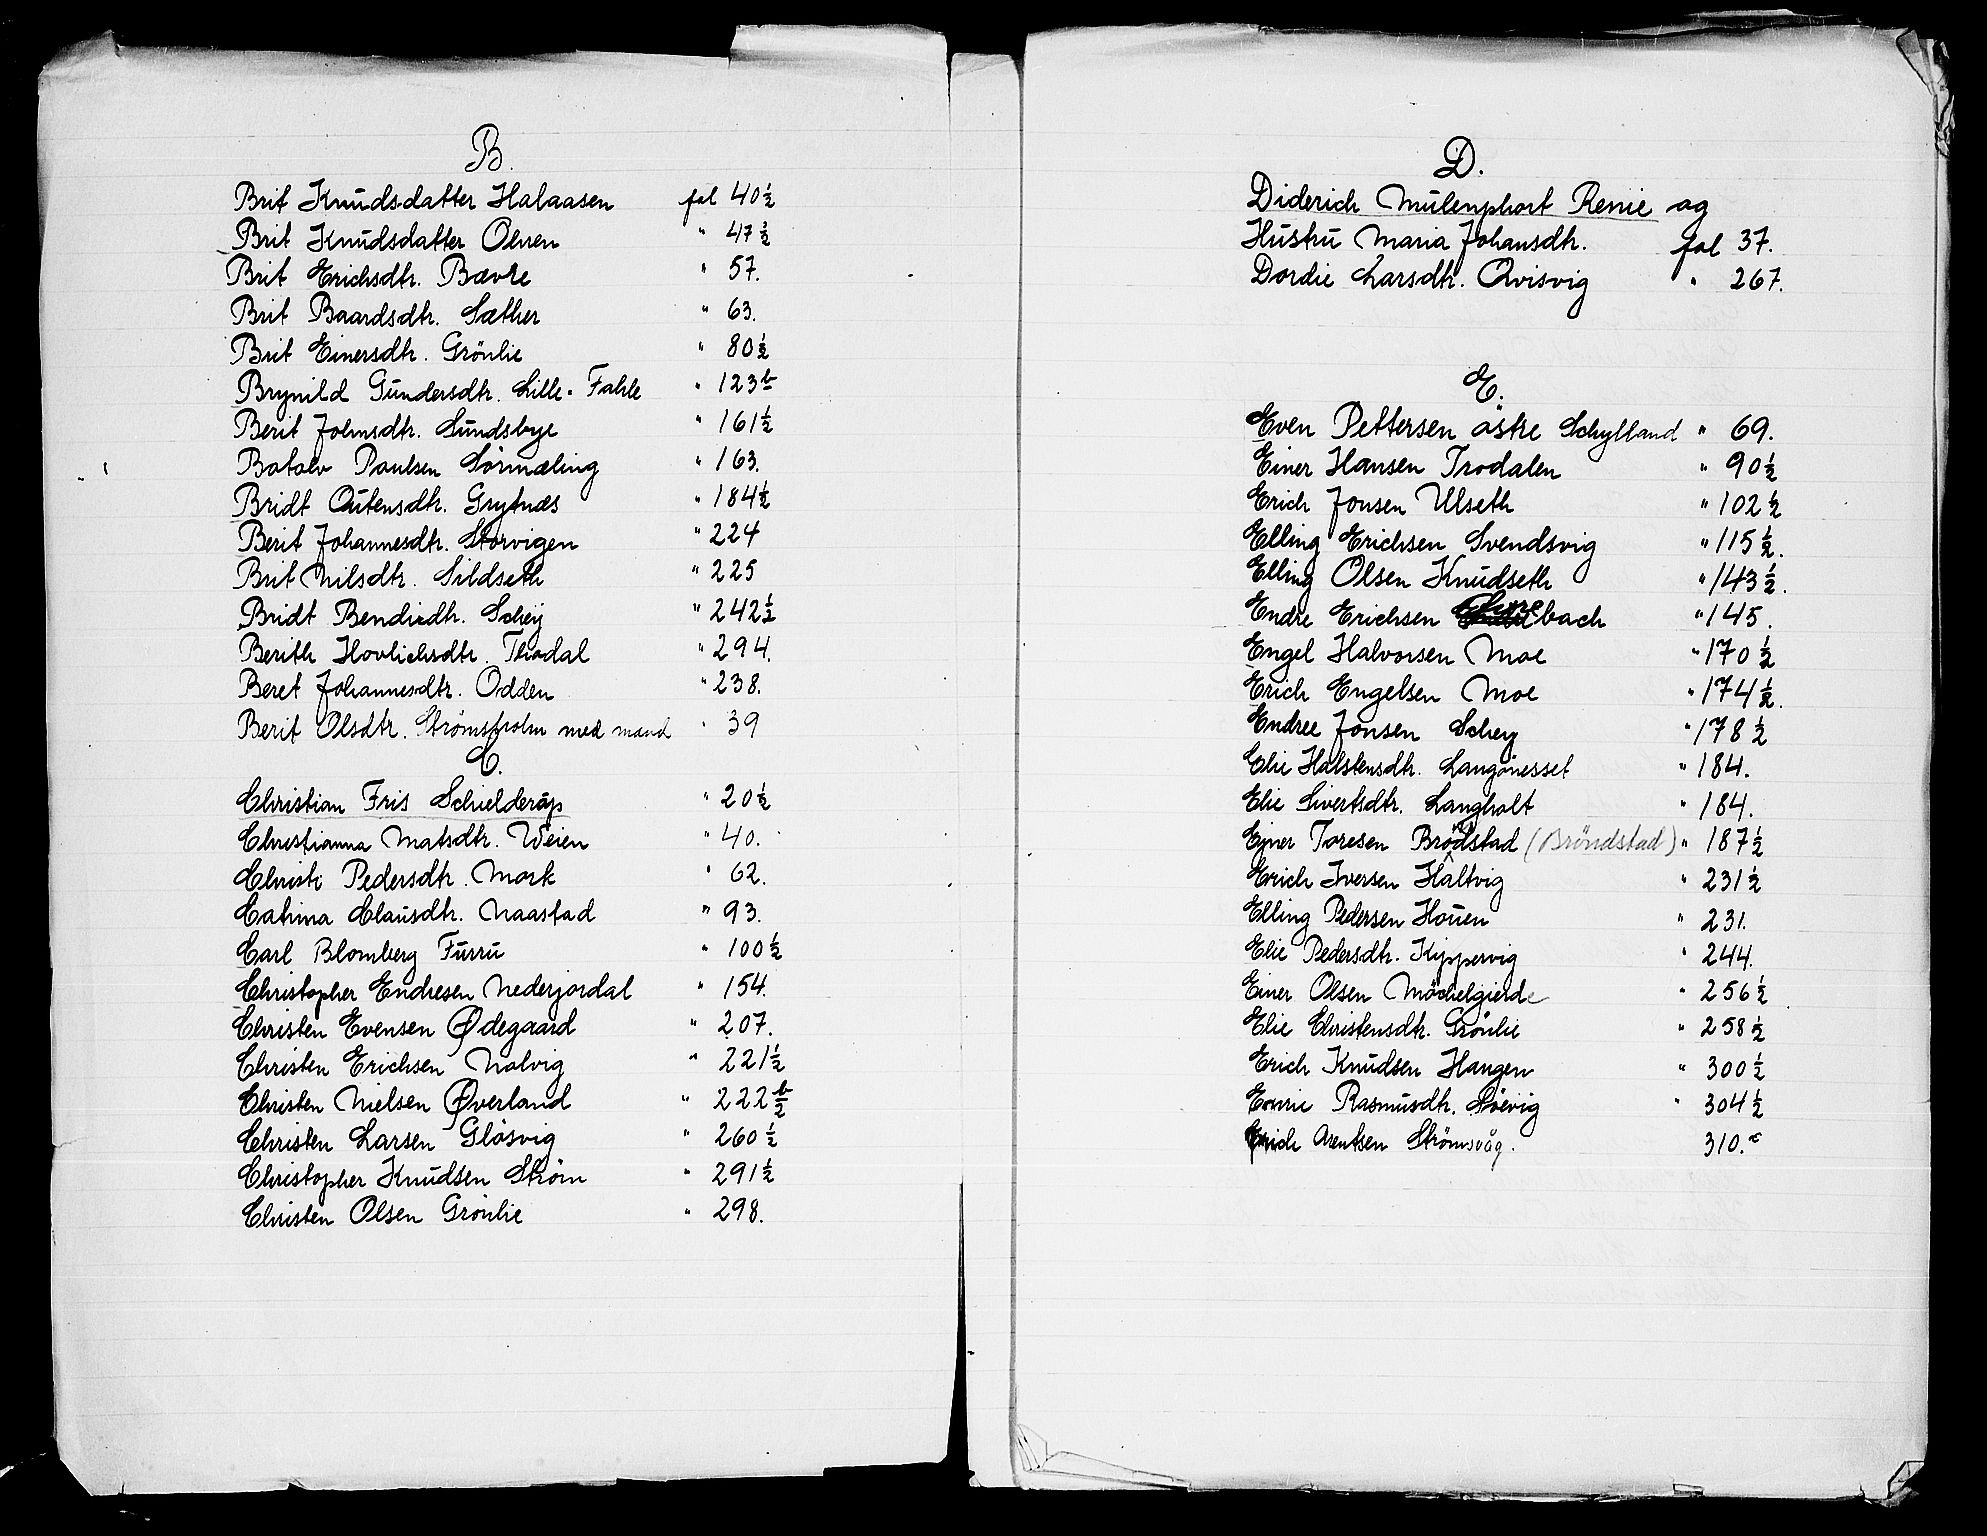 B.
Brit Knudsdatter Halaasen fol 40½
Brit Knudsdatter Olsen " 47½
Brit Erichsdtr. Bævre " 57.
Brit Baardsdtr. Sæther " 63.
Brit Einersdtr. Grönlie " 80½
Brynild Gundersdtr. Lille-Fahle " 123 b
Berit Johnsdtr. Sundsbye " 161½
Botolv Paulsen Sörmæling " 163.
Bridt Outensdtr. Grytnæs " 184½
Berit Johannesdtr. Storvigen " 224
Brit Nilsdtr. Sildseth " 225
Bridt Bendixdtr. Schey " 242½
Berith Hovlichsdtr. Thodal " 294.
Beret Johannesdtr. Odden " 238.
Berit Olsdtr. Strömsholm med mand " 39
C.
Christian Fris Schielderup " 20½
Christianna Matsdtr. Weien " 40.
Christi Pedersdtr. Mork " 62.
Catrina Clausdtr. Naastad " 93.
Carl Blomberg Furru " 100½
Christopher Endresen Nederjordal " 154.
Christen Evensen Ødegaard " 207.
Christen Erichsen Nolvig " 221½
Christen Nielsen Øverland " 222 b/2
Christen Larsen Glösvig " 260½
Christopher Knudsen Ström " 291½
Christen Olsen Grönlie " 298.
D.
Diderich Mulenphort Renie og
Hustru Maria Johansdtr. fol 37.
Dordie Larsdtr. Qvisvig " 267.
E.
Even Pettersen östre Schylland " 69.
Einer Hansen Trodalen " 90½
Erich Jonsen Ulseth " 102½
Elling Erichsen Svendsvig " 115½.
Elling Olsen Knudseth " 143½.
Endre Erichsen bach " 145.
Engel Halvorsen Moe " 170½
Erich Engelsen Moe " 174½.
Endree Jonsen Schey " 178½
Elie Halstensdtr. Langönesset " 184.
Elie Sivertsdtr. Langholt " 184.
Einer Toresen Brödstad (Bröndstad) " 187½
Erich Iversen Haltvig " 231½
Elling Pedersen Houen " 231.
Elie Pedersdtr. Kippervig " 244.
Einer Olsen Möchelgierde " 256½
Elie Christensdtr. Grönlie " 258½
Erich Knudsen Haugen " 300½
Rasmusdtr. Söevig " 304½
Erich Arentsen Strömsvåg. 310. c